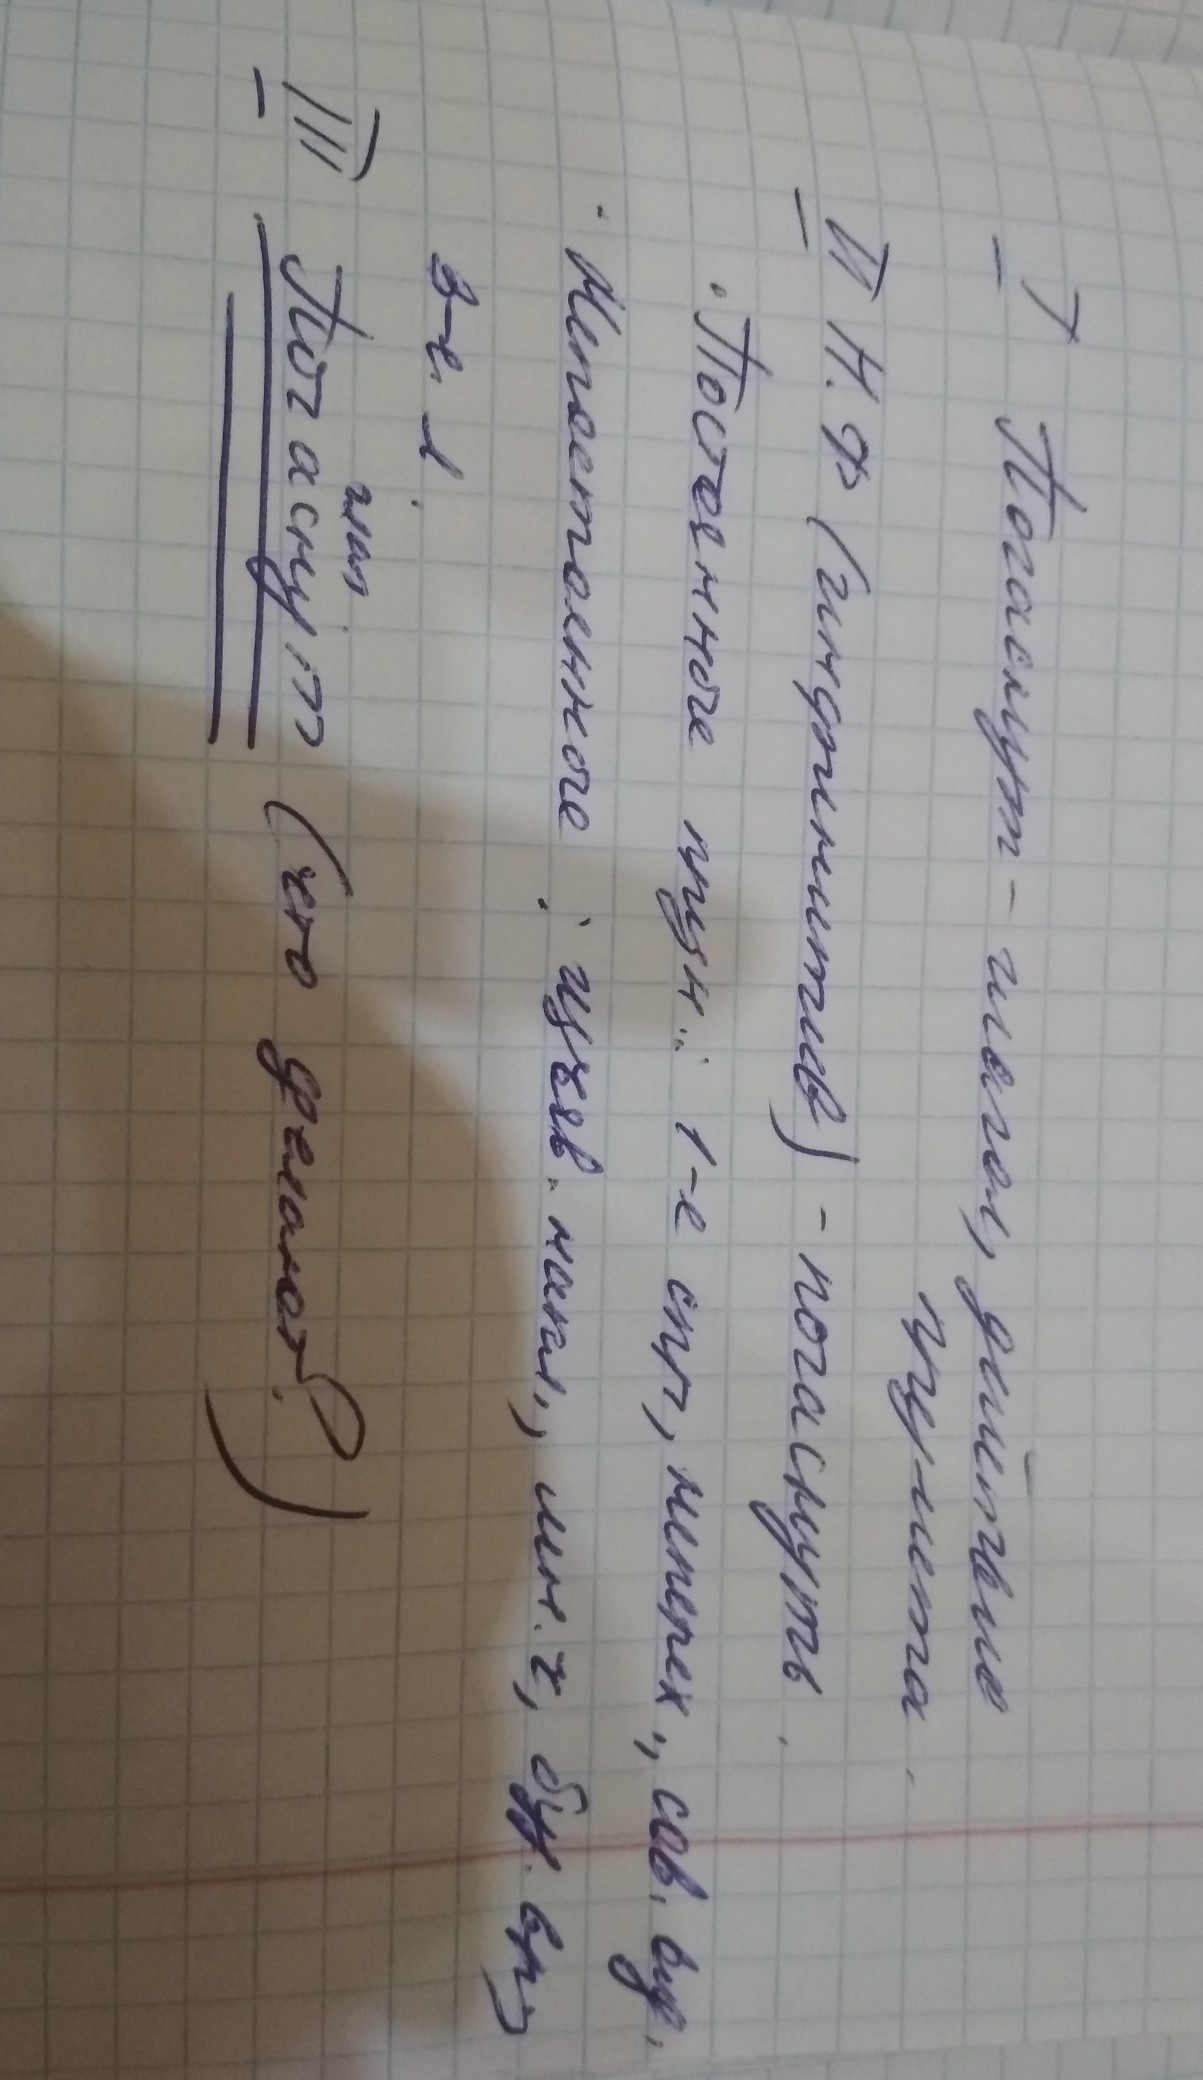 I Погаснут - глагол, действие
предмета.
II Н.Ф (инфинитив) - погаснуть.
· Постоянные призн.: 1-е спр, неперех., сов. вид.
· Непостоянные: изъяв. накл., мн. ч, буд. вр,
3-е. л.
глаг
III Погаснут (что делают?)